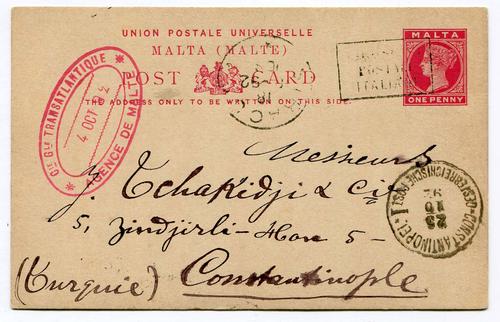 UNION POSTALE UNIVERSELLE
MALTA (MALTE)
POST CARD
THE ADDRESS ONLY TO BE WRITTEN ON THIS SIDE.
MALTA
ONE PENNY
Cie Gle TRANSATLANTIQUE
4 OCT
AGENCE DE MALTE
Messieurs
J. Tchakidji & Cie
5, Zindjirli-Han 5-
(Turquie) Constantinople
CONSTANTINOPEL I
25
10
92
OESTERREICHISCHE POST